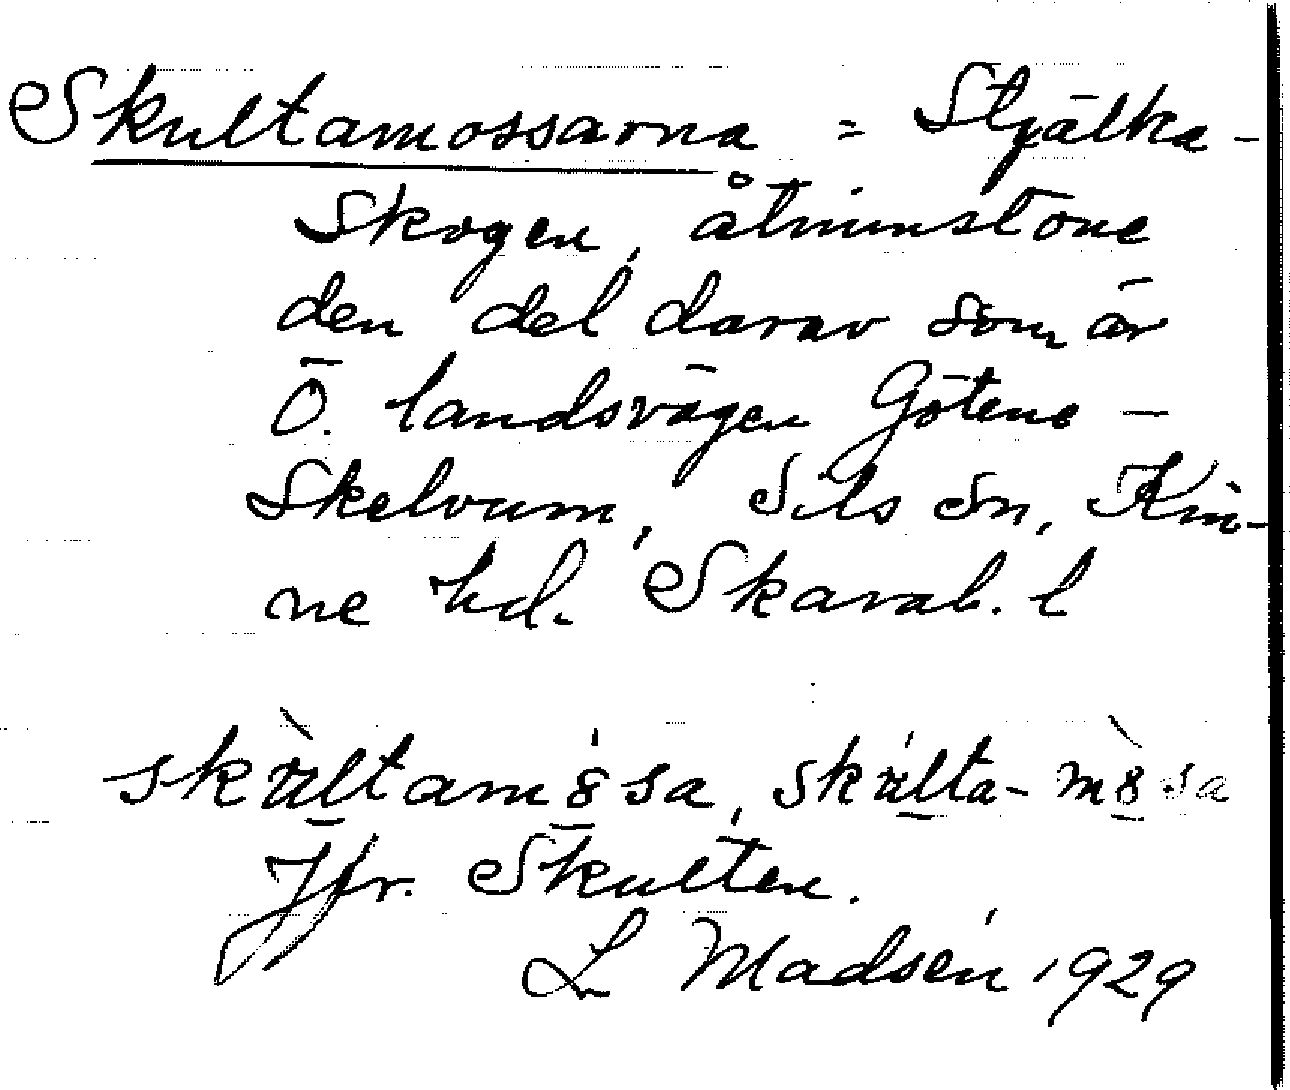 Skultamossarna = Stjälka-
skogen, åtminstone
den del därav som är
Ö. landsvägen Götene -
Skelvum, Sils sn, Kin-
ne hd. Skarab. l
skùltamósa, skúlta-mòsa
Jfr. Skulten.
L Madsén 1929